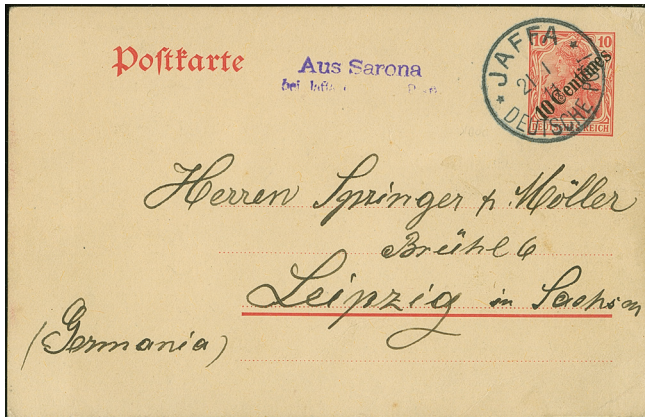 Postkarte
Aus Sarona
bei
JAFFA
DEUTSCHE
10 10
10 Centimes
REICH
Herren Springer & Möller
Brühl 6
Leipzig in Sachsen
(Germania)